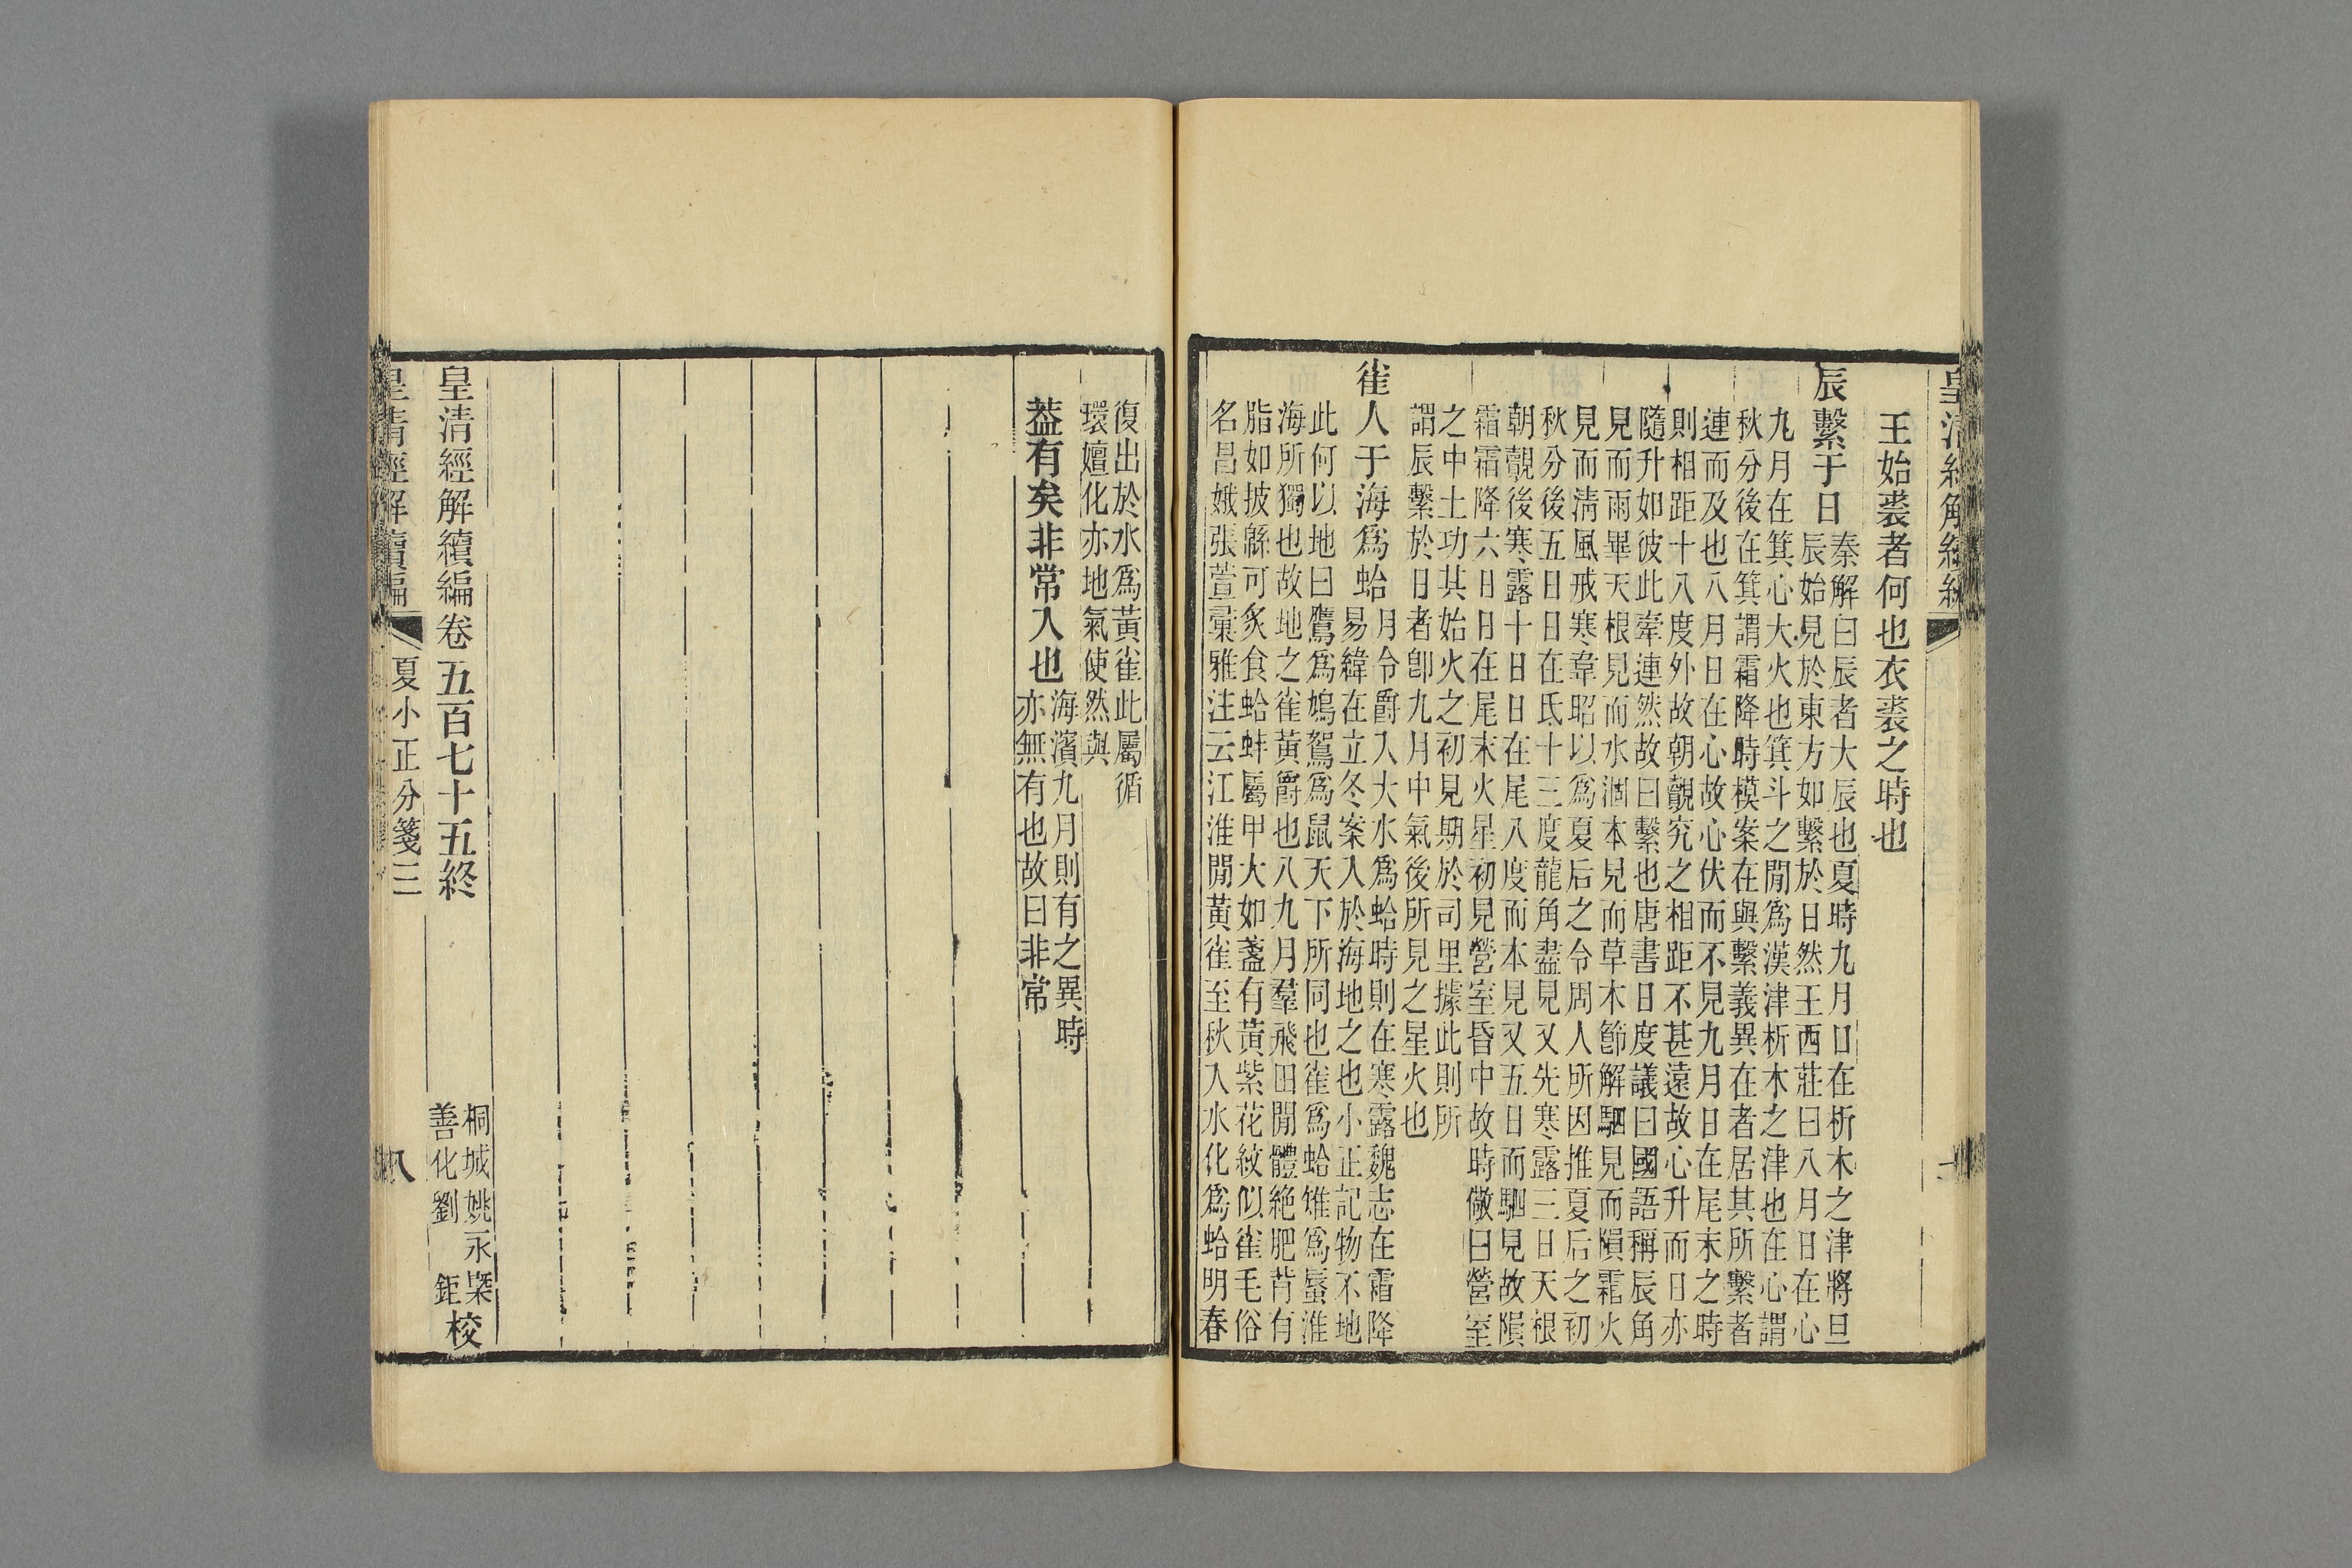 皇清經解續編
王始裘者何也衣裘之時也
辰繫于日
秦解曰辰者大辰也夏時九月日在析木之津將旦
辰始見於東方如繫於日然王西莊曰八月日在心
九月在箕心大火也箕斗之閒爲漢津析木之津也在心謂
秋分後在箕謂霜降時模案在與繫義異在者居其所繫者
連而及也八月日在心故心伏而不見九月日在尾末之時
則相距十八度外故朝覿究之相距不甚遠故心升而日亦
隨升如彼此牽連然故曰繫也唐書日度議曰國語稱辰角
見而雨畢天根見而水涸本見而草木節解駟見而隕霜火
見而清風戒寒韋昭以爲夏后之令周人所因推夏后之初
秋分後五日日在氐十三度龍角盡見又先寒露三日天根
朝覿後寒露十日日在尾八度而本見又五日而駟見故隕
霜霜降六日日在尾末火星初見營室昏中故時儆曰營室
之中土功其始火之初見期於司里據此則所
謂辰繫於日者卽九月中氣後所見之星火也
雀入于海爲蛤
月令爵入大水爲蛤時則在寒露魏志在霜降
易緯在立冬案入於海地之也小正記物不地
此何以地曰鷹爲鳩鴽爲鼠天下所同也雀爲蛤雉爲蜃淮
海所獨也故地之雀黃爵也八九月羣飛田閒體絶肥背有
脂如披緜可炙食蛤蚌屬甲大如盞有黃紫花紋似雀毛俗
名昌娥張萱彙雅注云江淮閒黃雀至秋入水化爲蛤明春
復出於水爲黃雀此屬循
環嬗化亦地氣使然與
葢有矣非常入也
海濱九月則有之異時
亦無有也故曰非常
皇清經解續編卷五百七十五終
桐城姚永㮣
善化劉鉅
校
皇清經解續編
夏小正分箋三
八